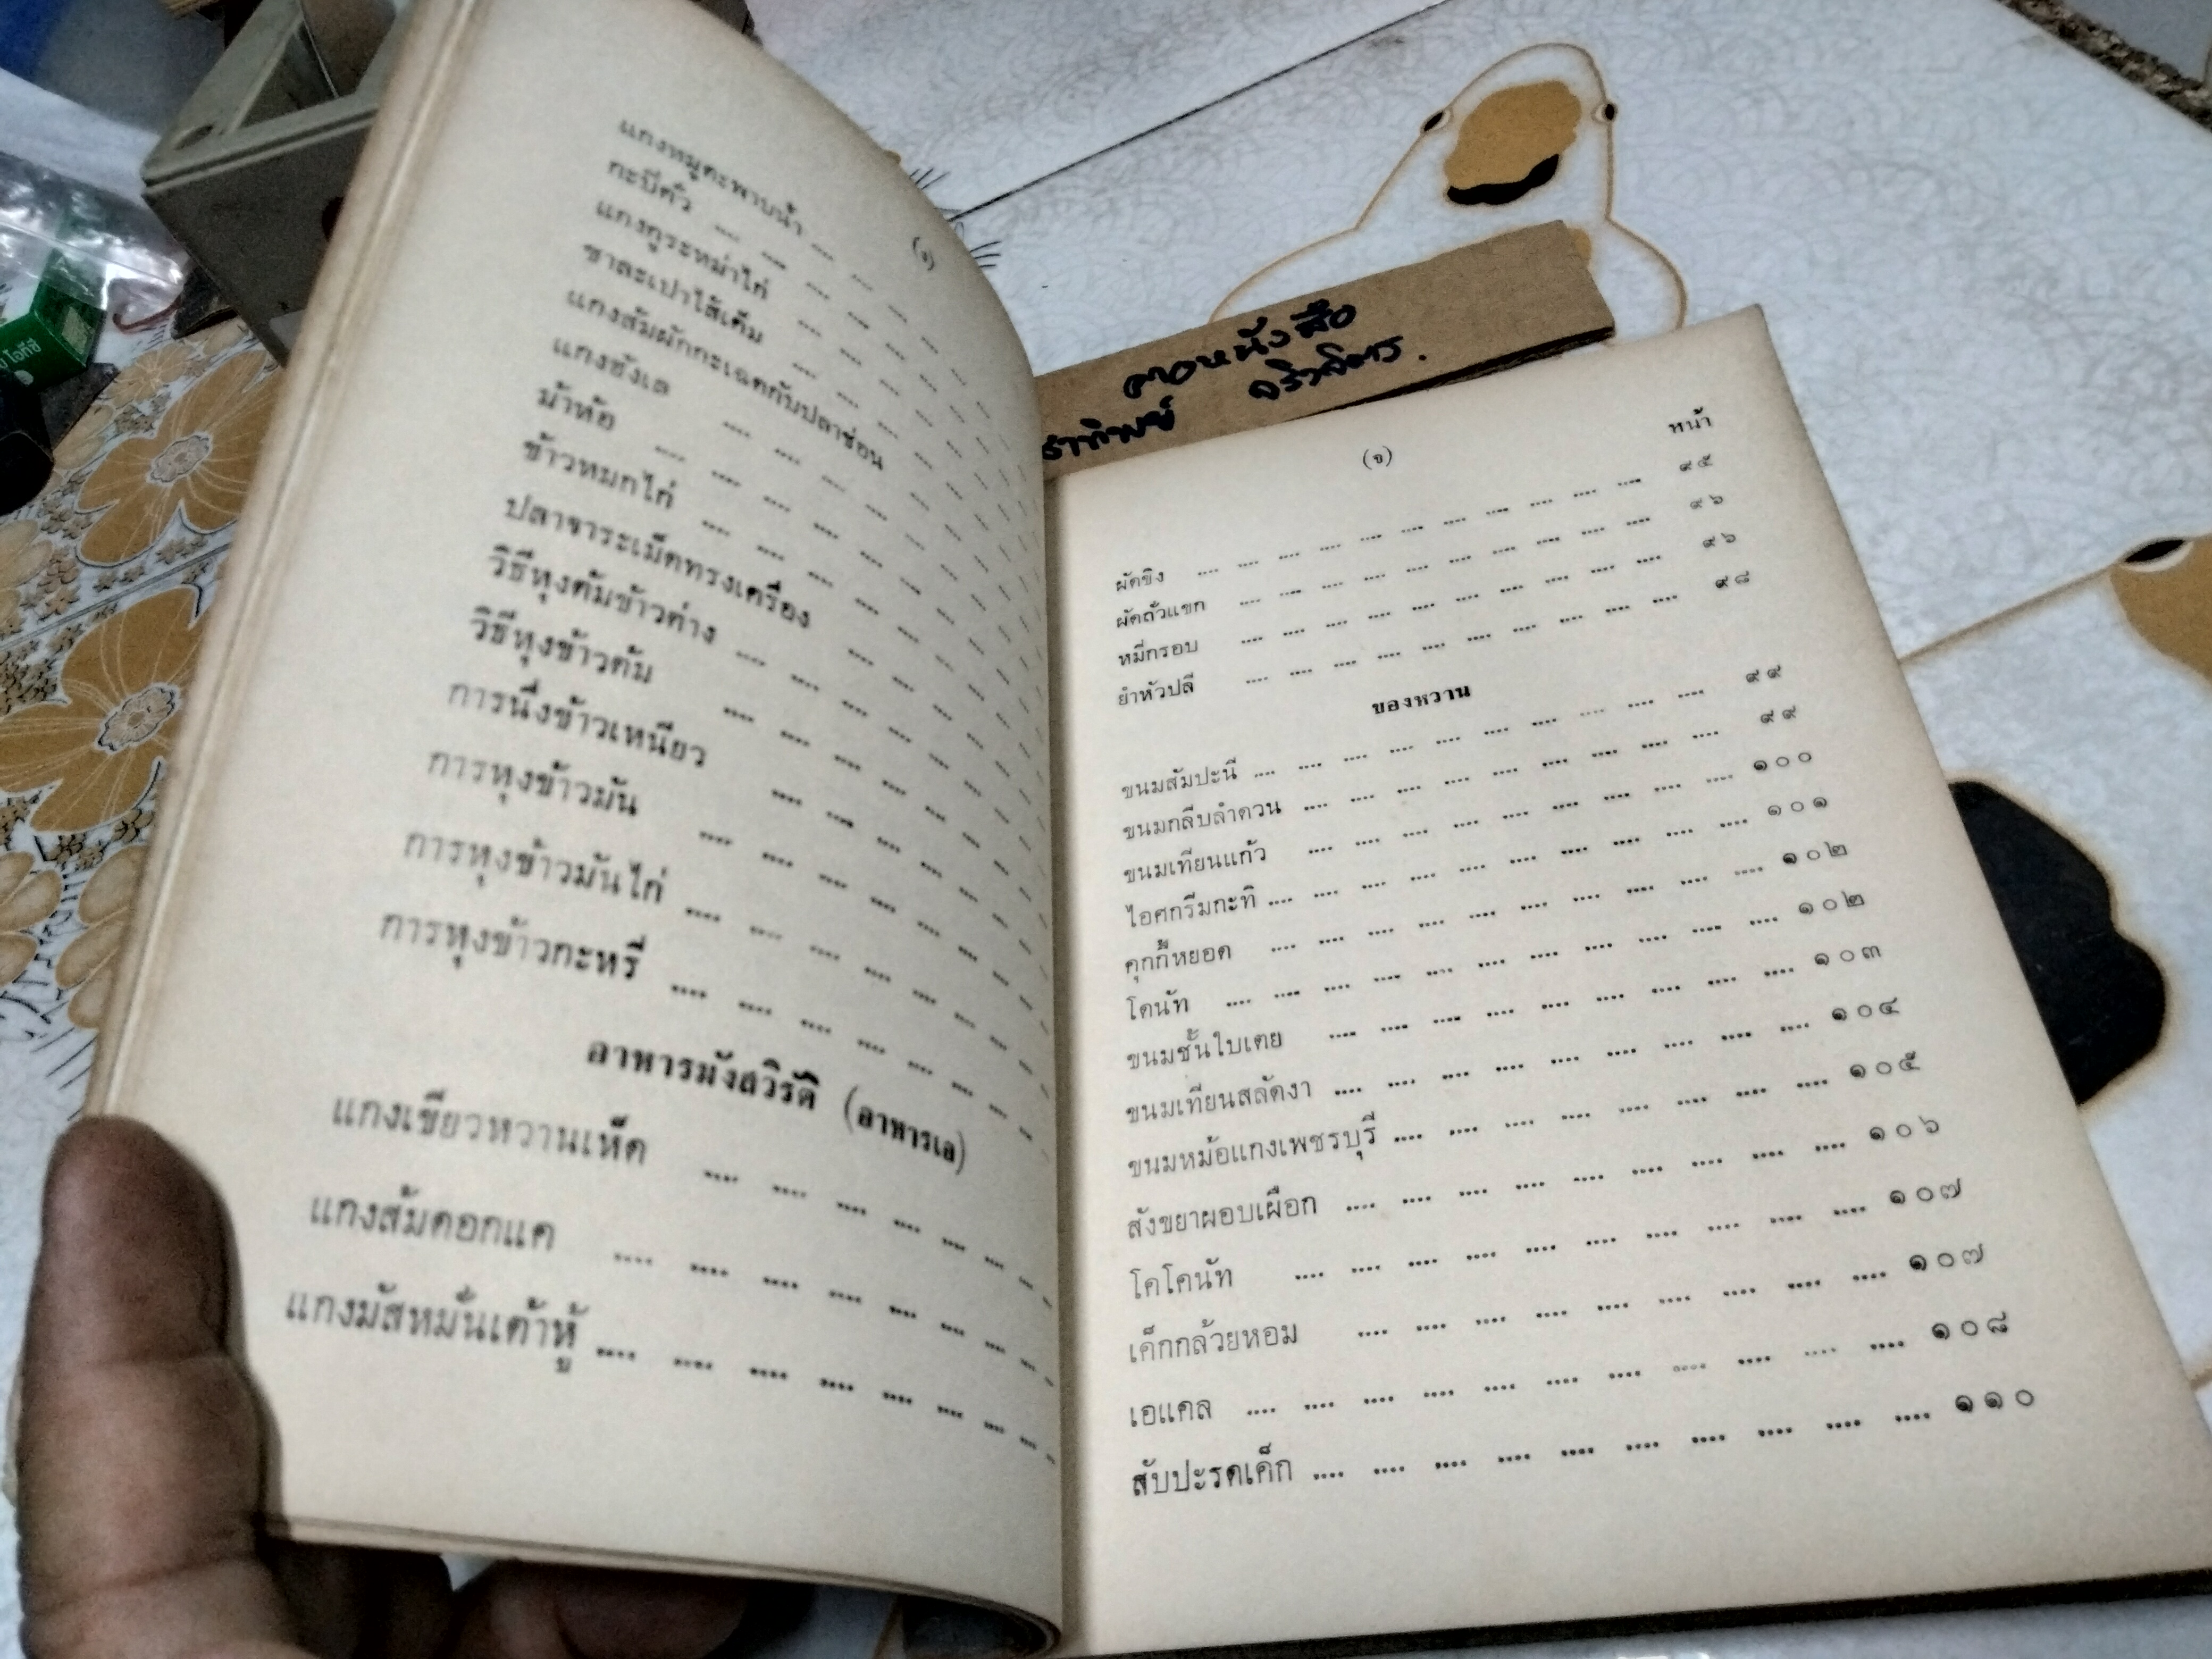 (ง)
แกงหมูตะพาบน้ำ .... .... .... ....
กะปิคั่ว .... .... .... .... ....
แกงกูระหม่าไก่ .... .... .... ....
ซาละเปาไส้เค็ม .... .... .... ....
แกงส้มผักกะเฉดกับปลาช่อน .... ....
แกงฮังเล .... .... .... .... ....
ม้าห้อ .... .... .... .... .... ....
ข้าวหมกไก่ .... .... .... .... ....
ปลาจาระเม็ดทรงเครื่อง .... .... ....
วิธีหุงต้มข้าวต่าง .... .... .... ....
วิธีหุงข้าวต้ม .... .... .... .... ....
การนึ่งข้าวเหนียว .... .... .... ....
การหุงข้าวมัน .... .... .... .... ....
การหุงข้าวมันไก่ .... .... .... .... ....
การหุงข้าวกะหรี่ .... .... .... .... ....
อาหารมังสวิรัติ (อาหารเจ)
แกงเขียวหวานเห็ด .... .... .... .... .... ....
แกงส้มดอกแค .... .... .... .... .... .... .... ....
แกงมัสหมั่นเต้าหู้ .... .... .... .... .... .... .... .... ....
โอทีซี
หนังสือ
ราทิพย์
(จ)
หน้า
ผัดขิง .... .... .... .... .... .... .... .... .... .... .... ๙๕
ผัดถั่วแขก .... .... .... .... .... .... .... .... .... .... ๙๖
หมี่กรอบ .... .... .... .... .... .... .... .... .... .... ๙๖
ยำหัวปลี .... .... .... .... .... .... .... .... .... .... ๙๘
ของหวาน
ขนมสัมปะนี .... .... .... .... .... .... .... .... .... .... ๙๙
ขนมกลีบลำดวน .... .... .... .... .... .... .... .... .... ๙๙
ขนมเทียนแก้ว .... .... .... .... .... .... .... .... .... ๑๐๐
ไอศกรีมกะทิ .... .... .... .... .... .... .... .... .... .... ๑๐๑
คุกกี้หยอด .... .... .... .... .... .... .... .... .... .... ๑๐๒
โดนัท .... .... .... .... .... .... .... .... .... .... .... ๑๐๒
ขนมชั้นใบเตย .... .... .... .... .... .... .... .... .... ๑๐๓
ขนมเทียนสลัดงา .... .... .... .... .... .... .... .... .... ๑๐๔
ขนมหม้อแกงเพชรบุรี .... .... .... .... .... .... .... .... ๑๐๕
สังขยาผอบเผือก .... .... .... .... .... .... .... .... .... ๑๐๖
โคโคนัท .... .... .... .... .... .... .... .... .... .... ๑๐๗
เค็กกล้วยหอม .... .... .... .... .... .... .... .... .... ๑๐๗
เอแคล .... .... .... .... .... .... .... .... .... .... .... ๑๐๘
สับปะรดเค็ก .... .... .... .... .... .... .... .... .... .... ๑๑๐